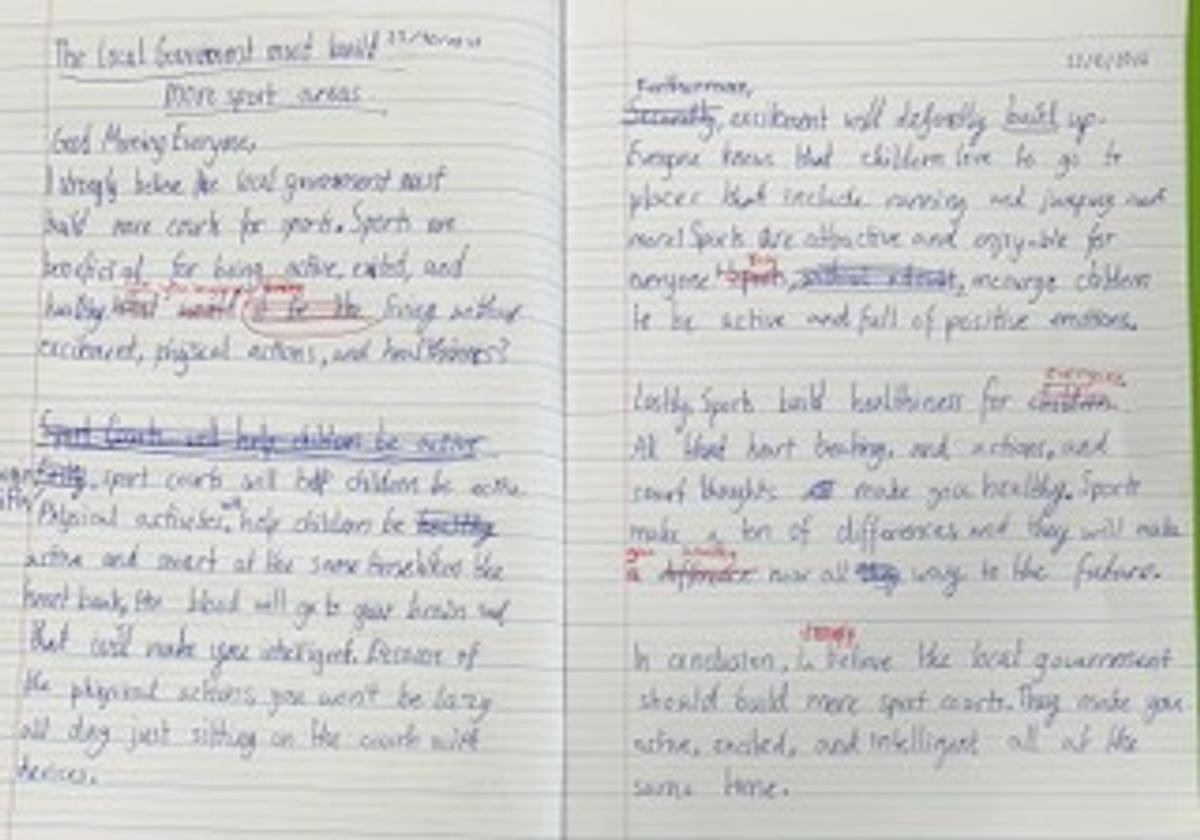 The Local Government must build
More sport areas.
Good Morning Everyone,
I strongly believe the local government must
build more courts for sports. Sports are
beneficial for being active, excited, and
healthy. living without
excitment, physical actions, and healthiness?
Sport Courts will help children be active
sport courts will help children be active.
Physical activites, will help children be healthy
active and smart at the same time. When the
heart beats, the blood will go to your brain and
that will make you intelligent. Because of
the physical actions, you won't be lazy
all day just sitting on the couch with
devices.
Furthermore,
Secondly, excitment will defenetly build up.
Everyone knows that childern love to go to
places that include running and jumping and
more! Sports are attractive and enjoy-able for
everyone. They, encourge children
to be active and full of positive emotions.
everyone
Lastly, Sports build healthiness for children.
All that heart beating, and actions, and
smart thoughts make you healthy. Sports
make a ton of differences and they will make
you healthy
a difference now all way to the future.
strongly
In conclusion, I believe the local government
should build more sport courts. They make you
active, excited, and intelligent all at the
same time.